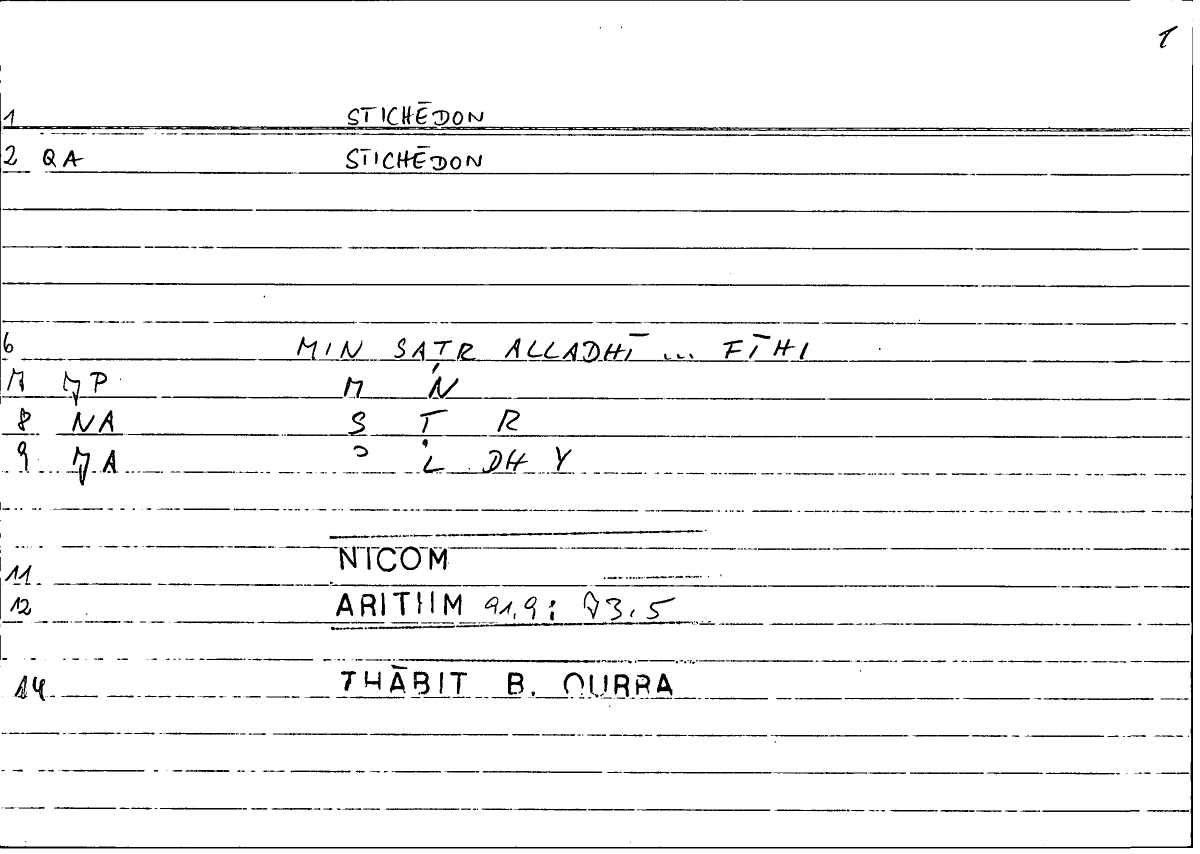 1
1 STICHĒDON
2 QA STICHĒDON
6 MIN SAṬR ALLADHĪ ... FĪHI
P M N
8 NA S Ṭ R
9 A L DH Y
11 NICOM
12 ARITHM 91,9; 93.5
14 THĀBIT B. QURRA